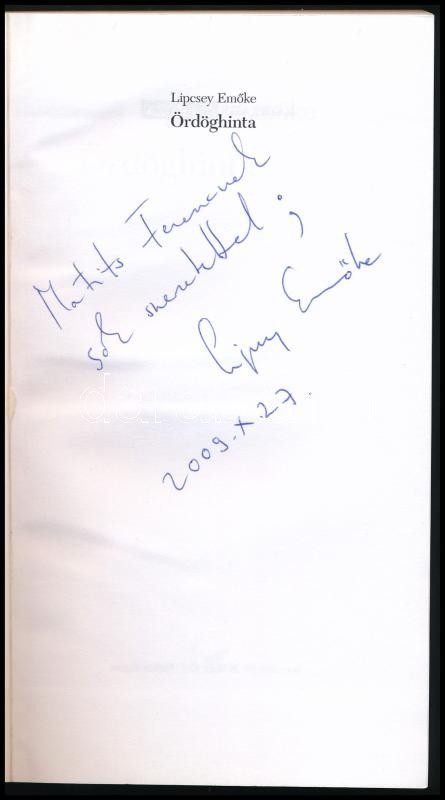 Lipcsey Emőke
Ördöghinta
Matits Ferencnek
sok szeretettel:
Lipcsey Emőke
2009. X. 27.